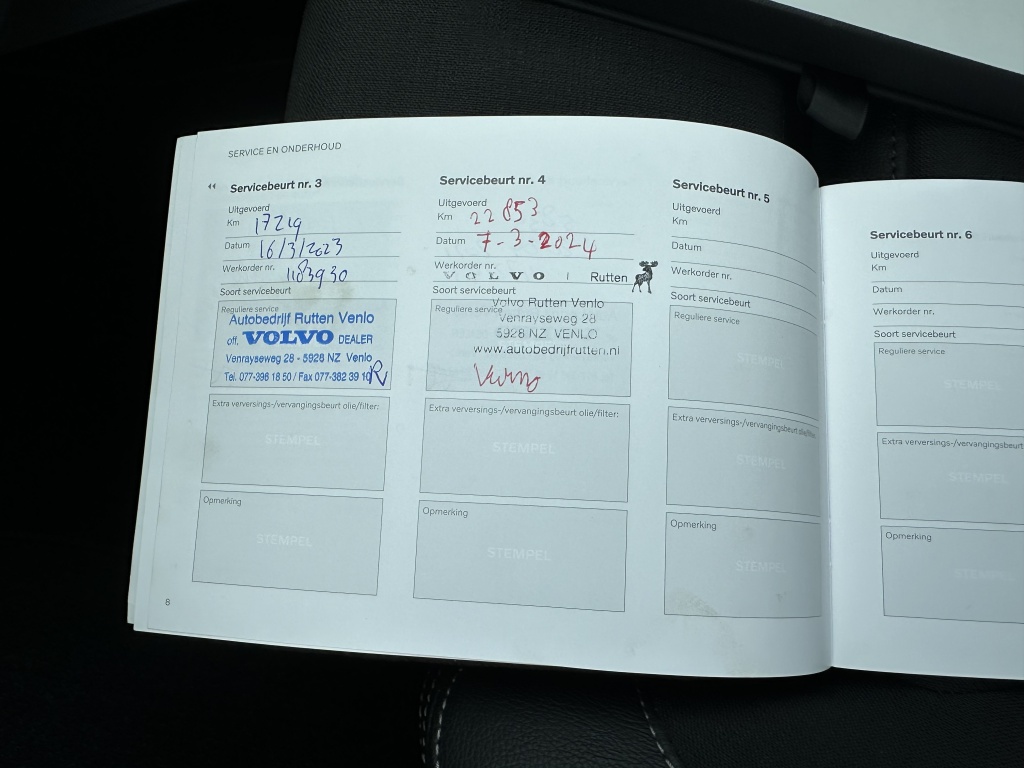 SERVICE EN ONDERHOUD
Servicebeurt nr. 3
Uitgevoerd
Km 17219
Datum 16/3/2023
Werkorder nr. 1183930
Soort servicebeurt
Reguliere service
Autobedrijf Rutten Venlo
off. VOLVO DEALER
Venrayseweg 28 - 5928 NZ Venlo
Tel. 077-396 18 50 / Fax 077-382 39 10
Extra verversings-/vervangingsbeurt olie/filter:
STEMPEL
Opmerking
STEMPEL
8
Servicebeurt nr. 4
Uitgevoerd
Km 22853
Datum 7-3-2024
Werkorder nr.
VOLVO | Rutten
Soort servicebeurt
Reguliere service
Volvo Rutten Venlo
Venrayseweg 28
5928 NZ VENLO
www.autobedrijfrutten.nl
Extra verversings-/vervangingsbeurt olie/filter:
STEMPEL
Opmerking
STEMPEL
Servicebeurt nr. 5
Uitgevoerd
Km
Datum
Werkorder nr.
Soort servicebeurt
Reguliere service
STEMPEL
Extra verversings-/vervangingsbeurt olie/filter:
STEMPEL
Opmerking
STEMPEL
Servicebeurt nr. 6
Uitgevoerd
Km
Datum
Werkorder nr.
Soort servicebeurt
Reguliere service
STEMPEL
Extra verversings-/vervangingsbeurt
STEMPEL
Opmerking
STEMPEL